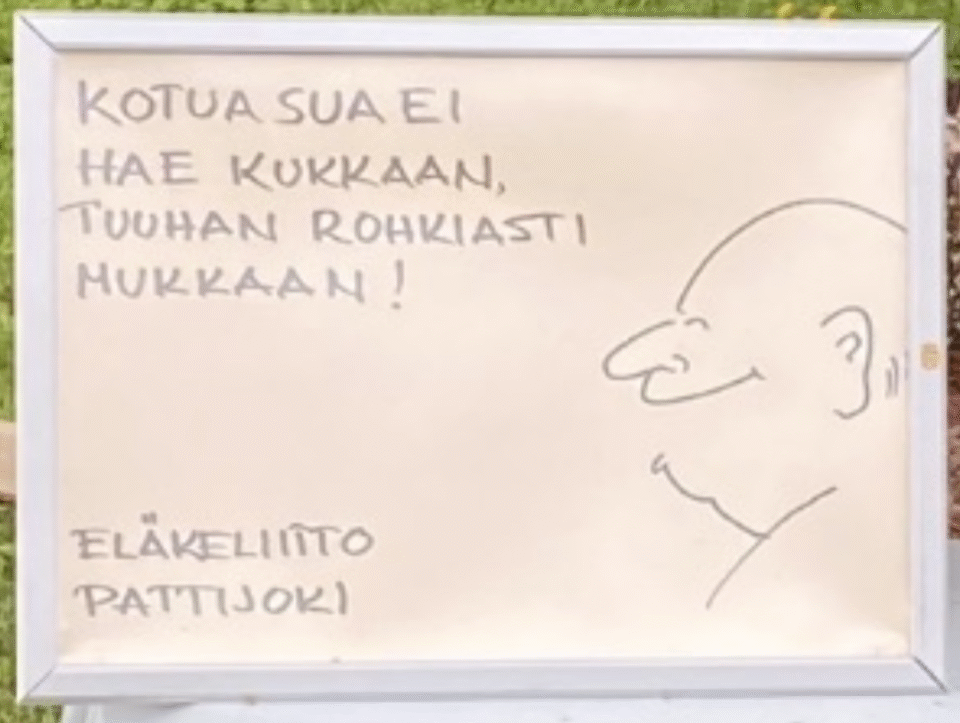 KOTUA SUA EI
HAE KUKKAAN,
TUUHAN ROHKIASTI
MUKKAAN!
ELÄKELIITTO
PATTIJOKI